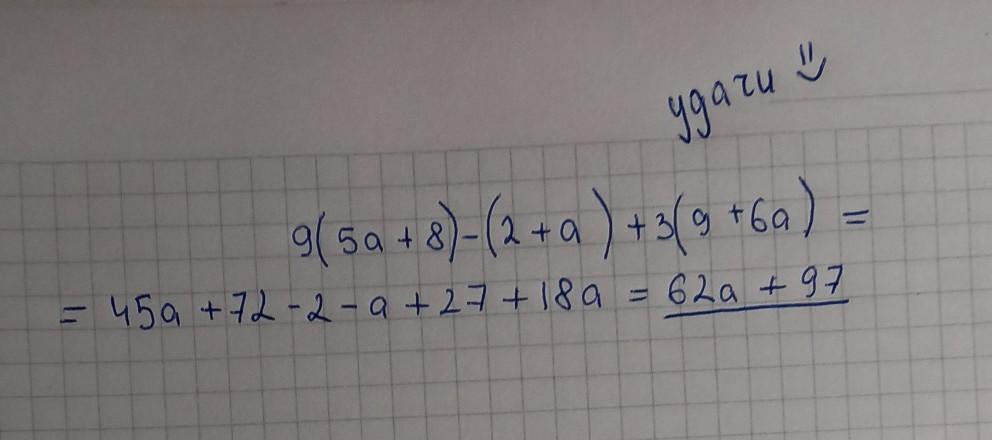 удачи
9(5a + 8) - (2 + a) + 3(9 + 6a) =
= 45a + 72 - 2 - a + 27 + 18a = 62a + 97